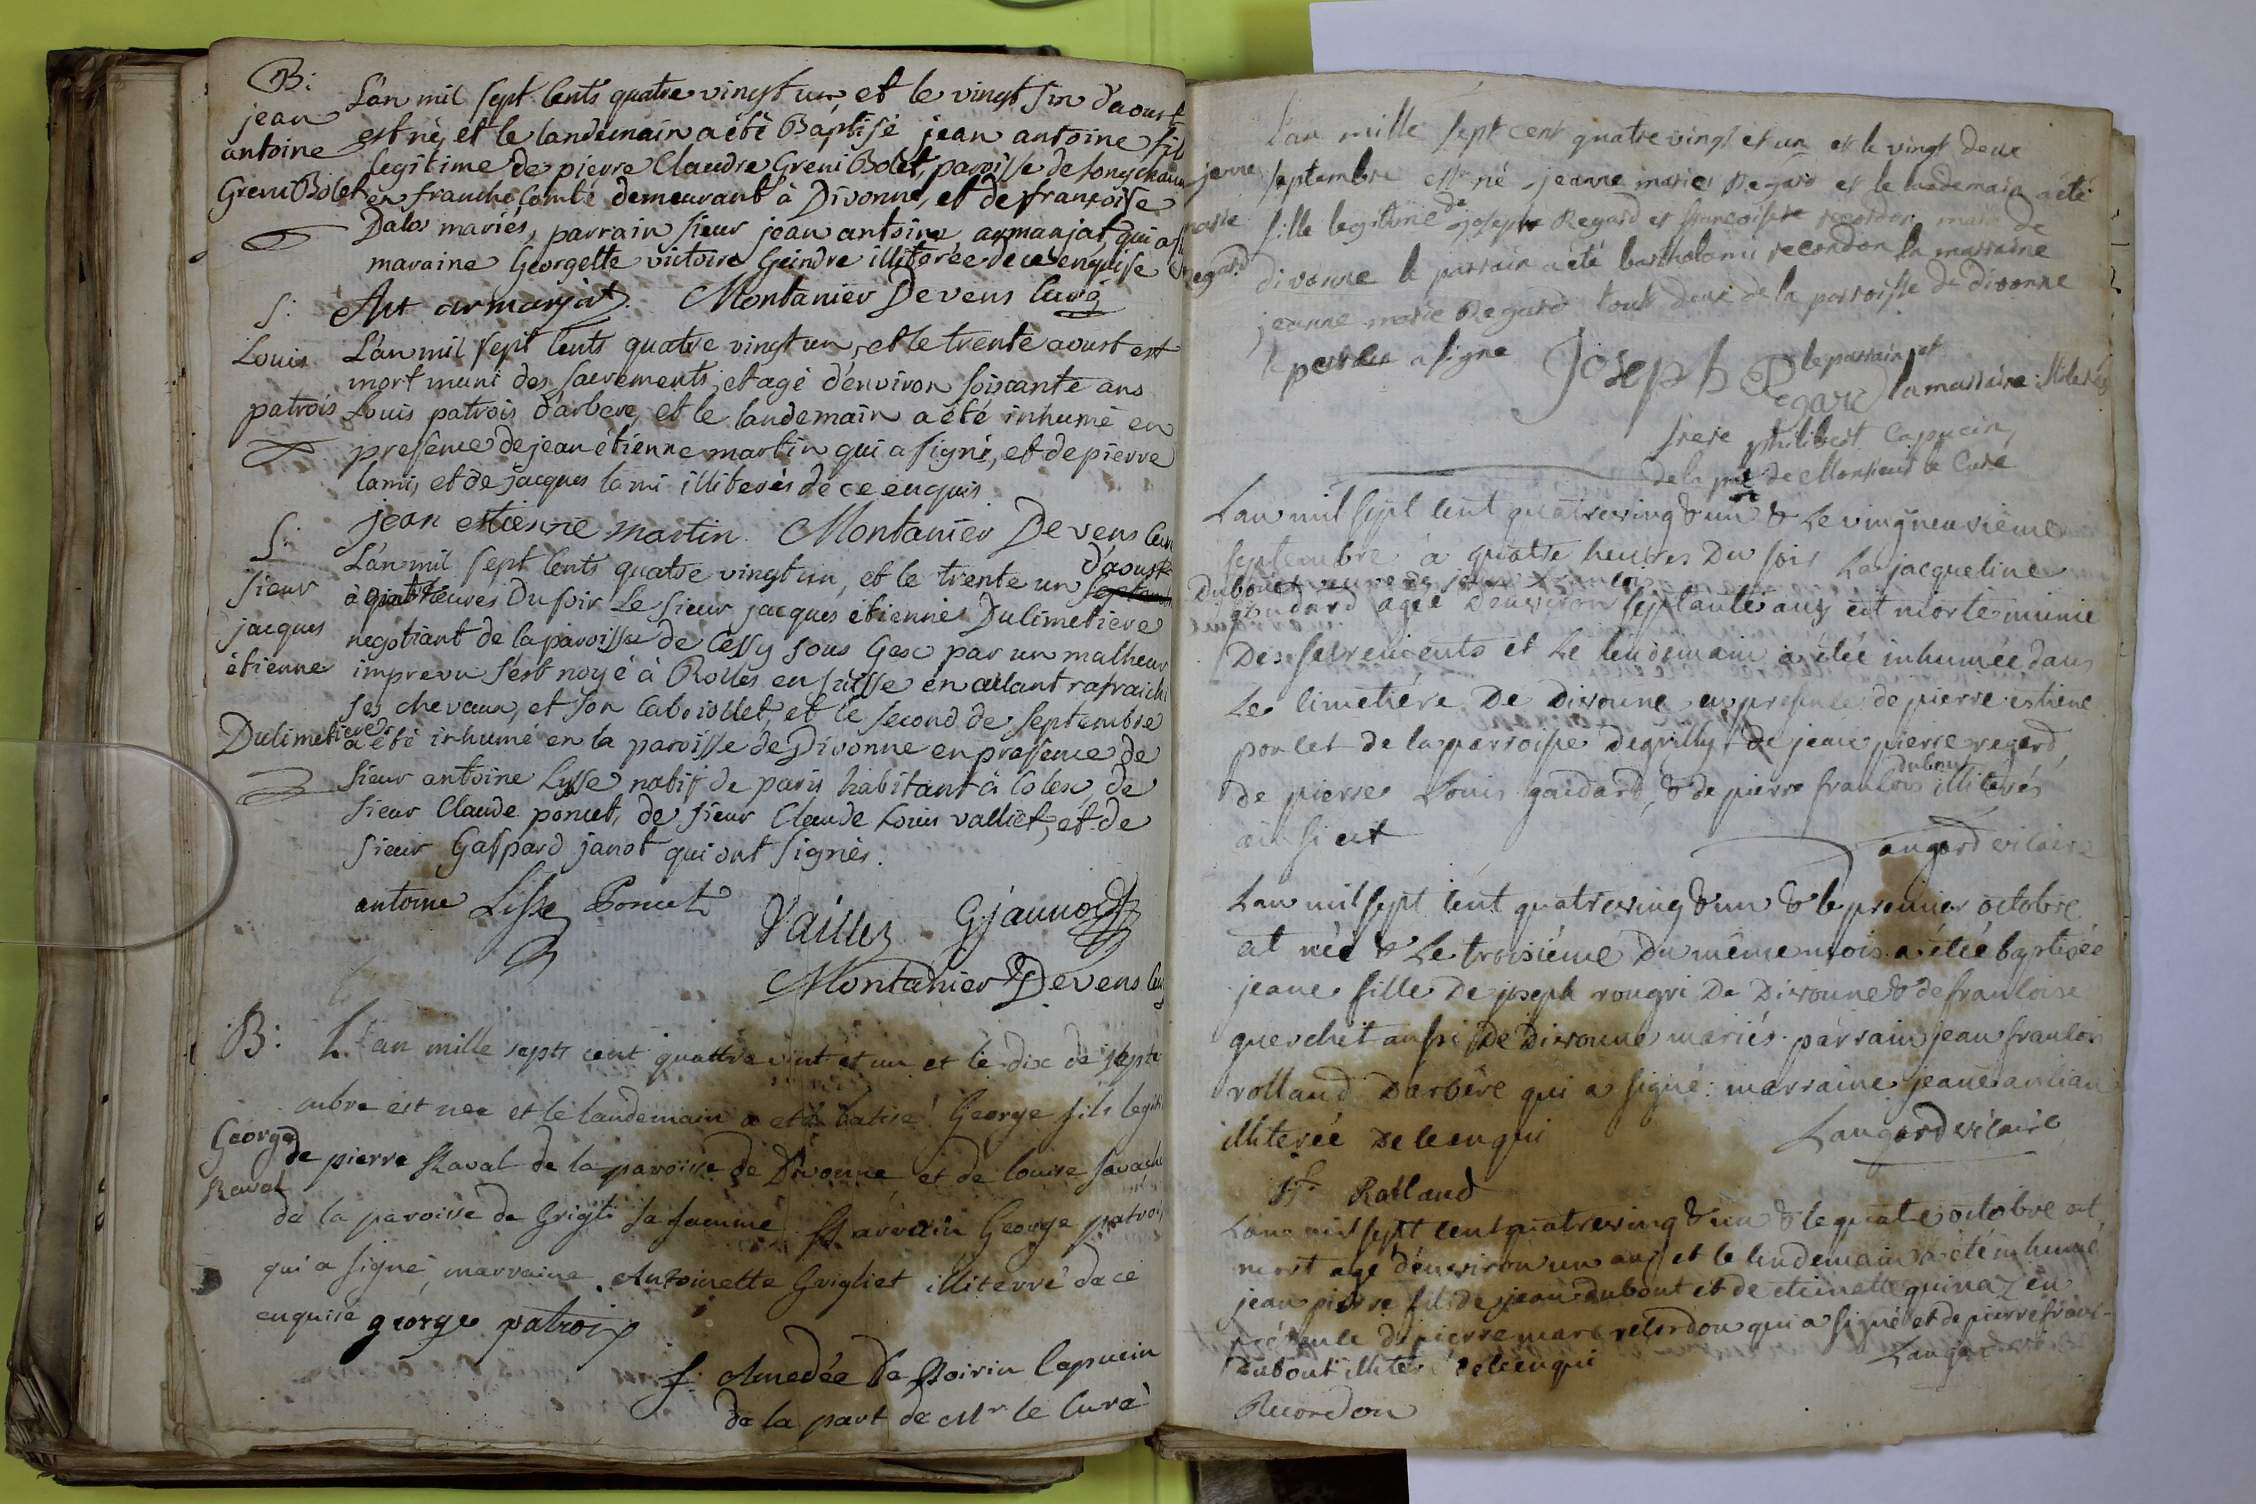 B:
L'an mil sept cents quatre vingt un, et le vingt six d'aoust
jean
est né, et le landemain a été Baptisé jean antoine fils
antoine
legitime de pierre Claudre Greni Bolet, paroisse de longchaum
Greni Bolet
en franche Comté demeurant à Divonne, et de françoise
Dalos mariés, parrain sieur jean antoine armanjat qui a s
maraine Georgette victoire Geindre illiterée de ce enquise
Ant armanjat. Montanier Devens Curé
S:
Louis
L'an mil sept cents quatre vingt un, et le trente aoust est
mort muni des sacrements, et agé d'environ soixante ans
patrois
Louis patrois d'arbere, et le landemain a été inhumé en
presence de jean étienne martin qui a signé, et de pierre
lami, et de jacques lami illiterés de ce enquis
jean estienne martin. Montanier Devens Cur
S:
L'an mil sept cents quatre vingt un, et le trente un septembre d'aoust
sieur
à quatre heures du soir le sieur jacques étienne Dulimetiere
jacques
negotiant de la paroisse de Cessy sous Gex par un malheur
étienne
imprevu s'est noyé à Rolles en suisse en allant rafraichi
ses chevaux, et son cabriollet, et le second de septembre
Dulimetiere
a été inhumé en la paroisse de Divonne en presence de
sieur antoine Lysse natif de paris habitant à Colex, de
sieur Claude poncet, de sieur Claude Louis valliet, et de
sieur Gaspard janot qui ont signés.
antoine Lisse Poncet Vaillet G jannot
Montanier Devens Cu
B:
L'an mille septs cent quattre vint et un et le dix de septe
mbre est nee et le landemain a eté batisé George fils legiti
George
de pierre Raval de la paroisse de Divonne et de louise
Raval
de la paroisse de Grigli sa famme Parrain George patroi
qui a signé, marraine Antoinette Grigliet illiterré de ce
enquise george patroix
f: Amedée de Poirin Capucin
de la part de Mr le Curé
L'an mille sept cent quatre vingt et un et le vingt deux
jenne
septembre est né jeanne marie Regard et le landemain a été
marie
fille legitime de joseph Regard et francoisse recordon mariés de
regard
divonne le parrain a été bartholomi recordon la marraine
jeanne marie Regard touts deux de la parroisse de divonne
le pere a signe Joseph Regard le parrain et la marraine illiterés
frere philibert Capucin,
de la part de Monsieur le Cure
L'an mil sept cent quatreving & un & le vingneuvieme
septembre à quatre heures du soir La jacqueline
Dubouet veuve de jean
gaudard agée d'environ septante ans est morte munie
Des sacrements et le lendemain a étée inhumée dans
Le cimetiére De Divonne en presence de pierre estiene
poncet de la parroisse de grilly, de jean pierre regard,
de pierre Louis gaudard, & de pierre francois dubout illiterés
ainsi est
Langard vicaire
L'an mil sept cent quatreving & un & le premier octobre
est née & Le troisiéme du même mois a étée baptisée
jeane fille De joseph rougri De Divonne & de francoise
querchet aussi De Divonne mariés. parrain jean francois
rolland D'arbére qui a signé: marraine jeane
illiterée De ce enqui
Langard vicaire
j. f. Rolland
L'an mil sept cent quatreving & un & le quatre octobre est
mort agé d'environ un ans et le lendemain a été inhumé
jean pierre fils de jean dubout et de etienette quinaz en
présence de pierre marc recordon qui a signé et de pierre franc-
Dubout illiteré de ce enqui
Langard
Recordon